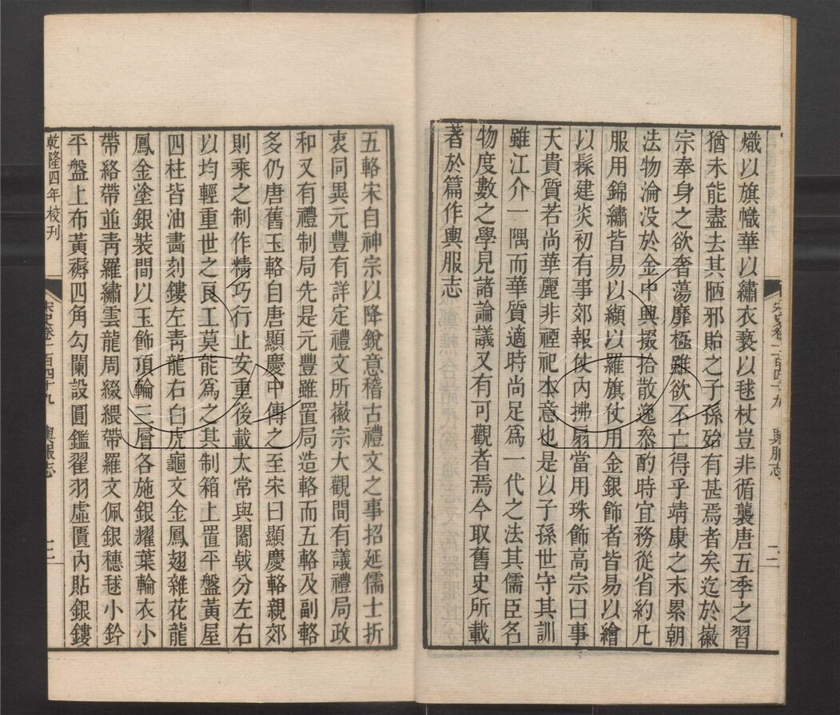 熾以旗幟華以繡衣褻以毬杖豈非循襲唐五季之習
猶未能盡去其陋邪貽之子孫殆有甚焉者矣迄於徽
宗奉身之欲奢蕩靡極雖欲不亡得乎靖康之末累朝
法物淪沒於金中興掇拾散逸參酌時宜務從省約凡
服用錦繡皆易以纈以羅旗仗用金銀飾者皆易以繪
以髹建炎初有事郊報仗內拂扇當用珠飾高宗曰事
天貴質若尚華麗非禋祀本意也是以子孫世守其訓
雖江介一隅而華質適時尚足爲一代之法其儒臣名
物度數之學見諸論議又有可觀者焉今取舊史所載
著於篇作輿服志
五輅宋自神宗以降銳意稽古禮文之事招延儒士折
衷同異元豐有詳定禮文所徽宗大觀間有議禮局政
和又有禮制局先是元豐雖置局造輅而五輅及副輅
多仍唐舊玉輅自唐顯慶中傳之至宋曰顯慶輅親郊
則乘之制作精巧行止安重後載太常輿闟戟分左右
以均輕重世之良工莫能爲之其制箱上置平盤黃屋
四柱皆油畫刻鏤左青龍右白虎龜文金鳳翅雜花龍
鳳金塗銀裝間以玉飾頂輪三層各施銀耀葉輪衣小
帶絡帶並青羅繡雲龍周綴緹帶羅文佩銀穗毬小鈴
平盤上布黃褥四角勾闌設圓鑑翟羽虛匱內貼銀鏤
乾隆四年校刊
宋史卷一百四十九 輿服志
二